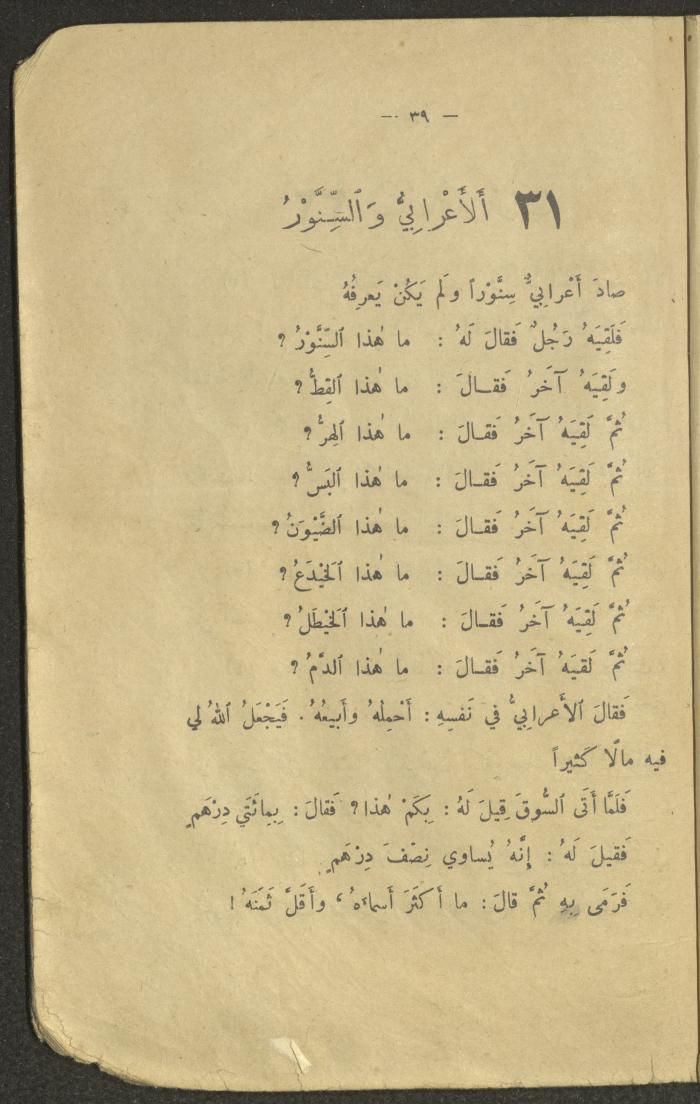 — ٣٩ —
٣١ أَلأَعْرابِيُّ وَٱلسِّنَّوْرُ
صادَ أَعْرابِيٌّ سِنَّوْراً ولَم يَكُنْ يَعرِفُهُ
فَلَقِيَهُ رَجُلٌ فَقالَ لَهُ : ما هٰذا ٱلسِّنَّوْرُ ؟
ولَقِيَهُ آخَرُ فَقـالَ : ما هٰذا ٱلقِطُّ ؟
ثُمَّ لَقِيَهُ آخَرُ فَقـالَ : ما هٰذا ٱلهِرُّ ؟
ثُمَّ لَقِيَهُ آخَرُ فَقـالَ : ما هٰذا ٱلبَسُّ ؟
ثُمَّ لَقِيَهُ آخَرُ فَقـالَ : ما هٰذا ٱلضَّيْوَنُ ؟
ثُمَّ لَقِيَهُ آخَرُ فَقـالَ : ما هٰذا ٱلخَيْدَعُ ؟
ثُمَّ لَقِيَهُ آخَرُ فَقـالَ : ما هٰذا ٱلخَيْطَلُ ؟
ثُمَّ لَقيَهُ آخَرُ فَقـالَ : ما هٰذا ٱلدَّمُ ؟
فَقالَ ٱلأَعرابِيُّ في نَفسِهِ : أَحْمِلُهُ وأَبيعُهُ . فَيَجْعَلُ ٱللهُ لي
فيه مالًا كَثيراً
فَلَمَّا أَتَى ٱلسُّوقَ قِيلَ لَهُ : بِكَمْ هٰذا ؟ فَقالَ : بِمِائَتَي دِرْهَمٍ
فَقيلَ لَهُ : إِنَّهُ يُساوي نِصْفَ دِرْهَمٍ
فَرَمَى بِهِ ثُمَّ قالَ : ما أَكثَرَ أَسماءَهُ ، وأَقَلَّ ثَمَنَهُ !